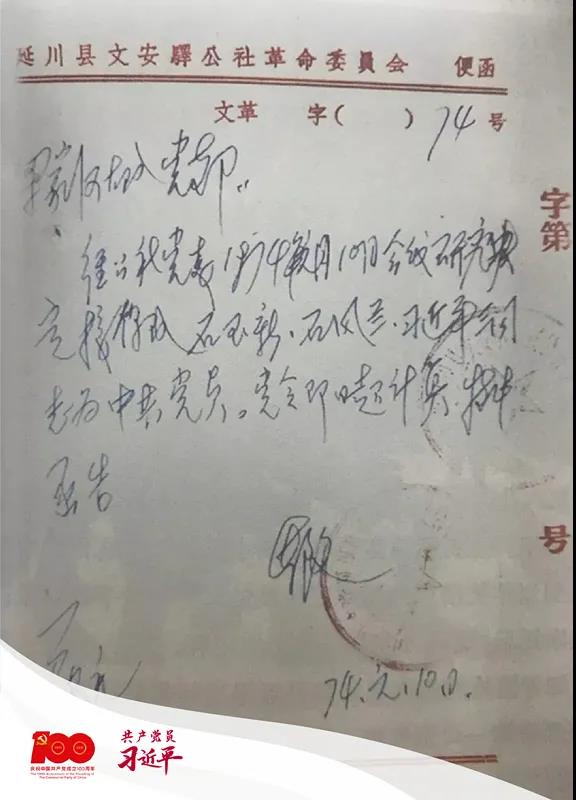 延川县文安驛公社革命委員会 便函
文革 字( ) 74 号
党部
经公社党委1974年1月10日会议研究决
定接收 石玉新、石凤兰、习近平 同
志为中共党员。党令即日起计算，特此
函告
74.元.10日.
字第
号
100
庆祝中国共产党成立100周年
The 100th Anniversary of the Founding of
The Communist Party of China
共产党员
习近平